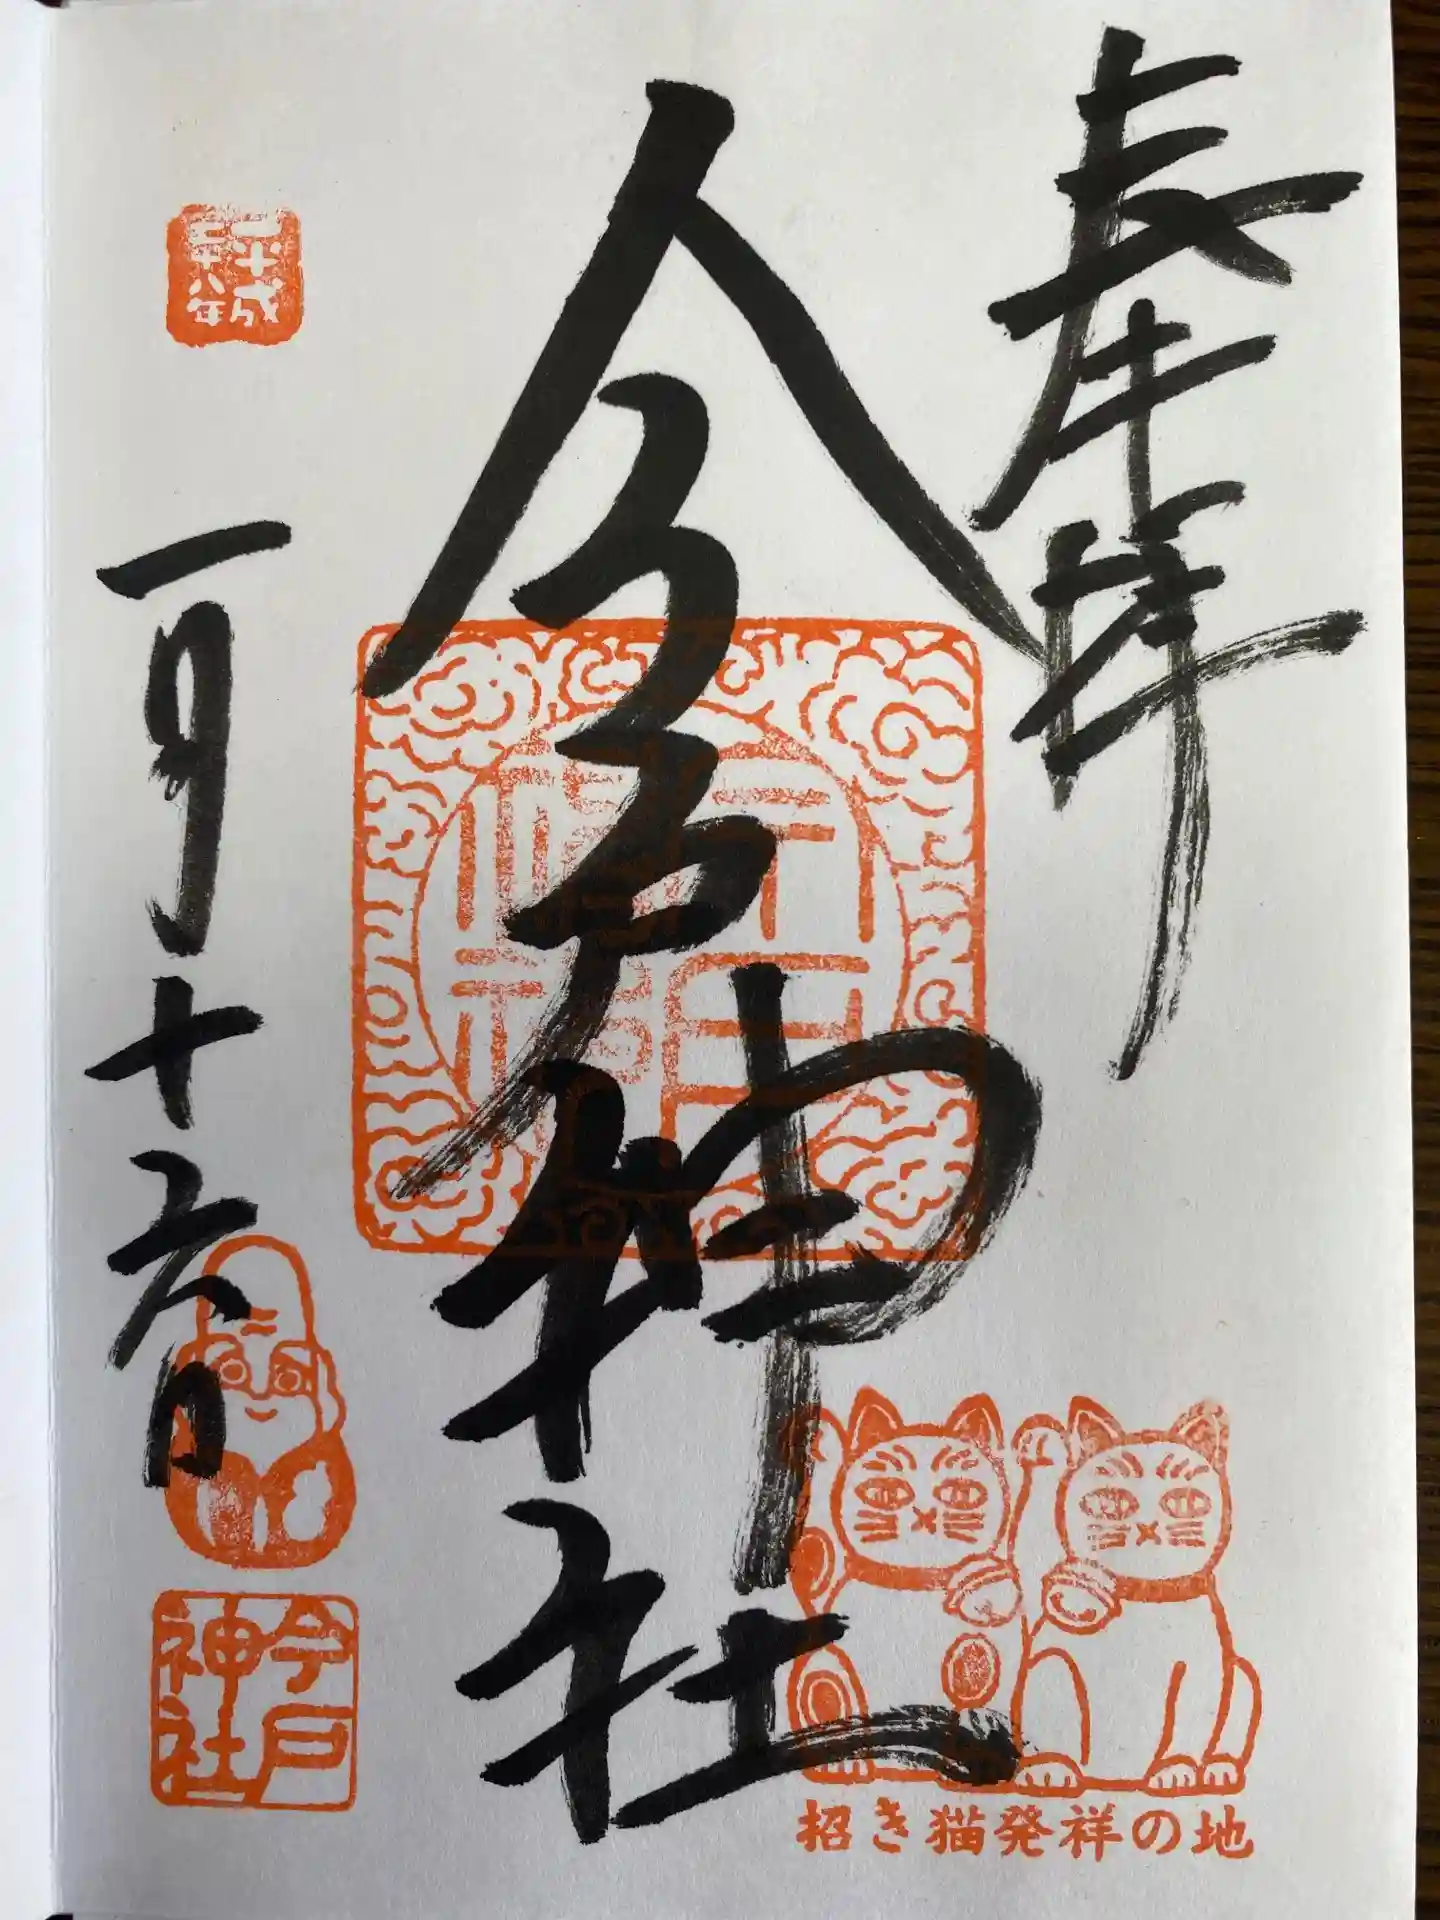 奉拝
今戸神社
平成二十八年
一月十六日
今戸
神社
招き猫発祥の地